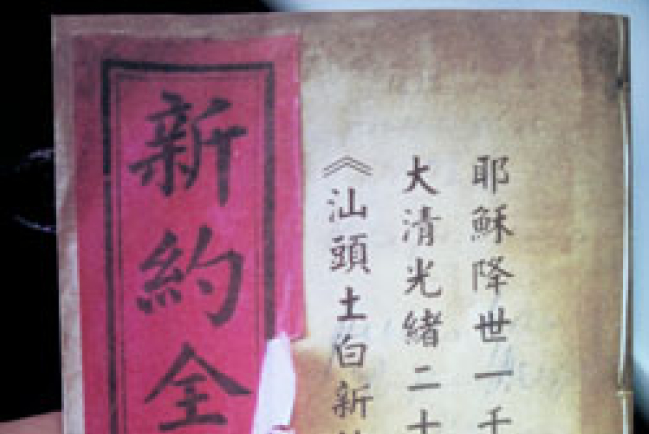 耶穌降世一千
大清光緒二十
《汕頭土白新
新約全